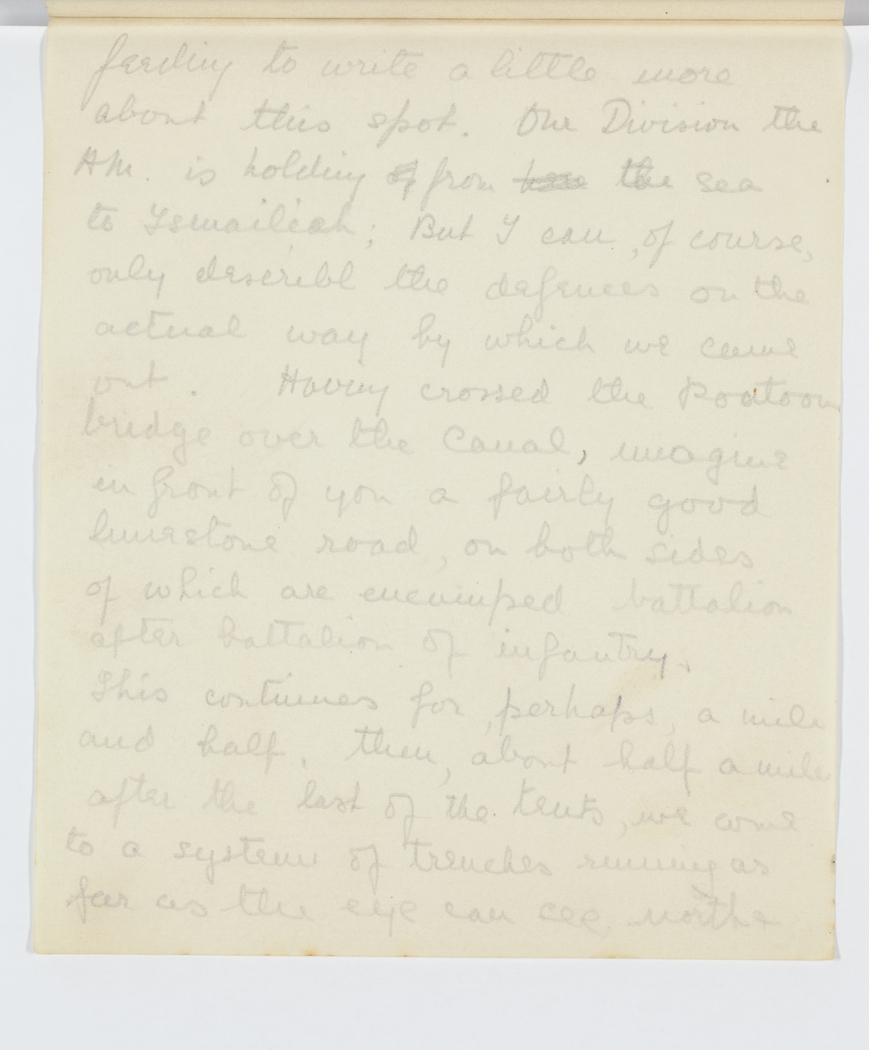 feeding to write a little more
about this spot. Our Division the
AM. is holding from the sea
to Ismailiah; But I can, of course,
only describl the defences on the
actual way by which we came
out. Having crossed the Pontoon
bridge over the Canal, imagine
in front of you a fairly good
limestone road, on both sides
of which are encamped battalion
after battalion of infantry.
This continues for, perhaps, a mile
and half. Then, about half a mile
after the last of the tents, we come
to a system of trenches running as
far as the eye can see north &